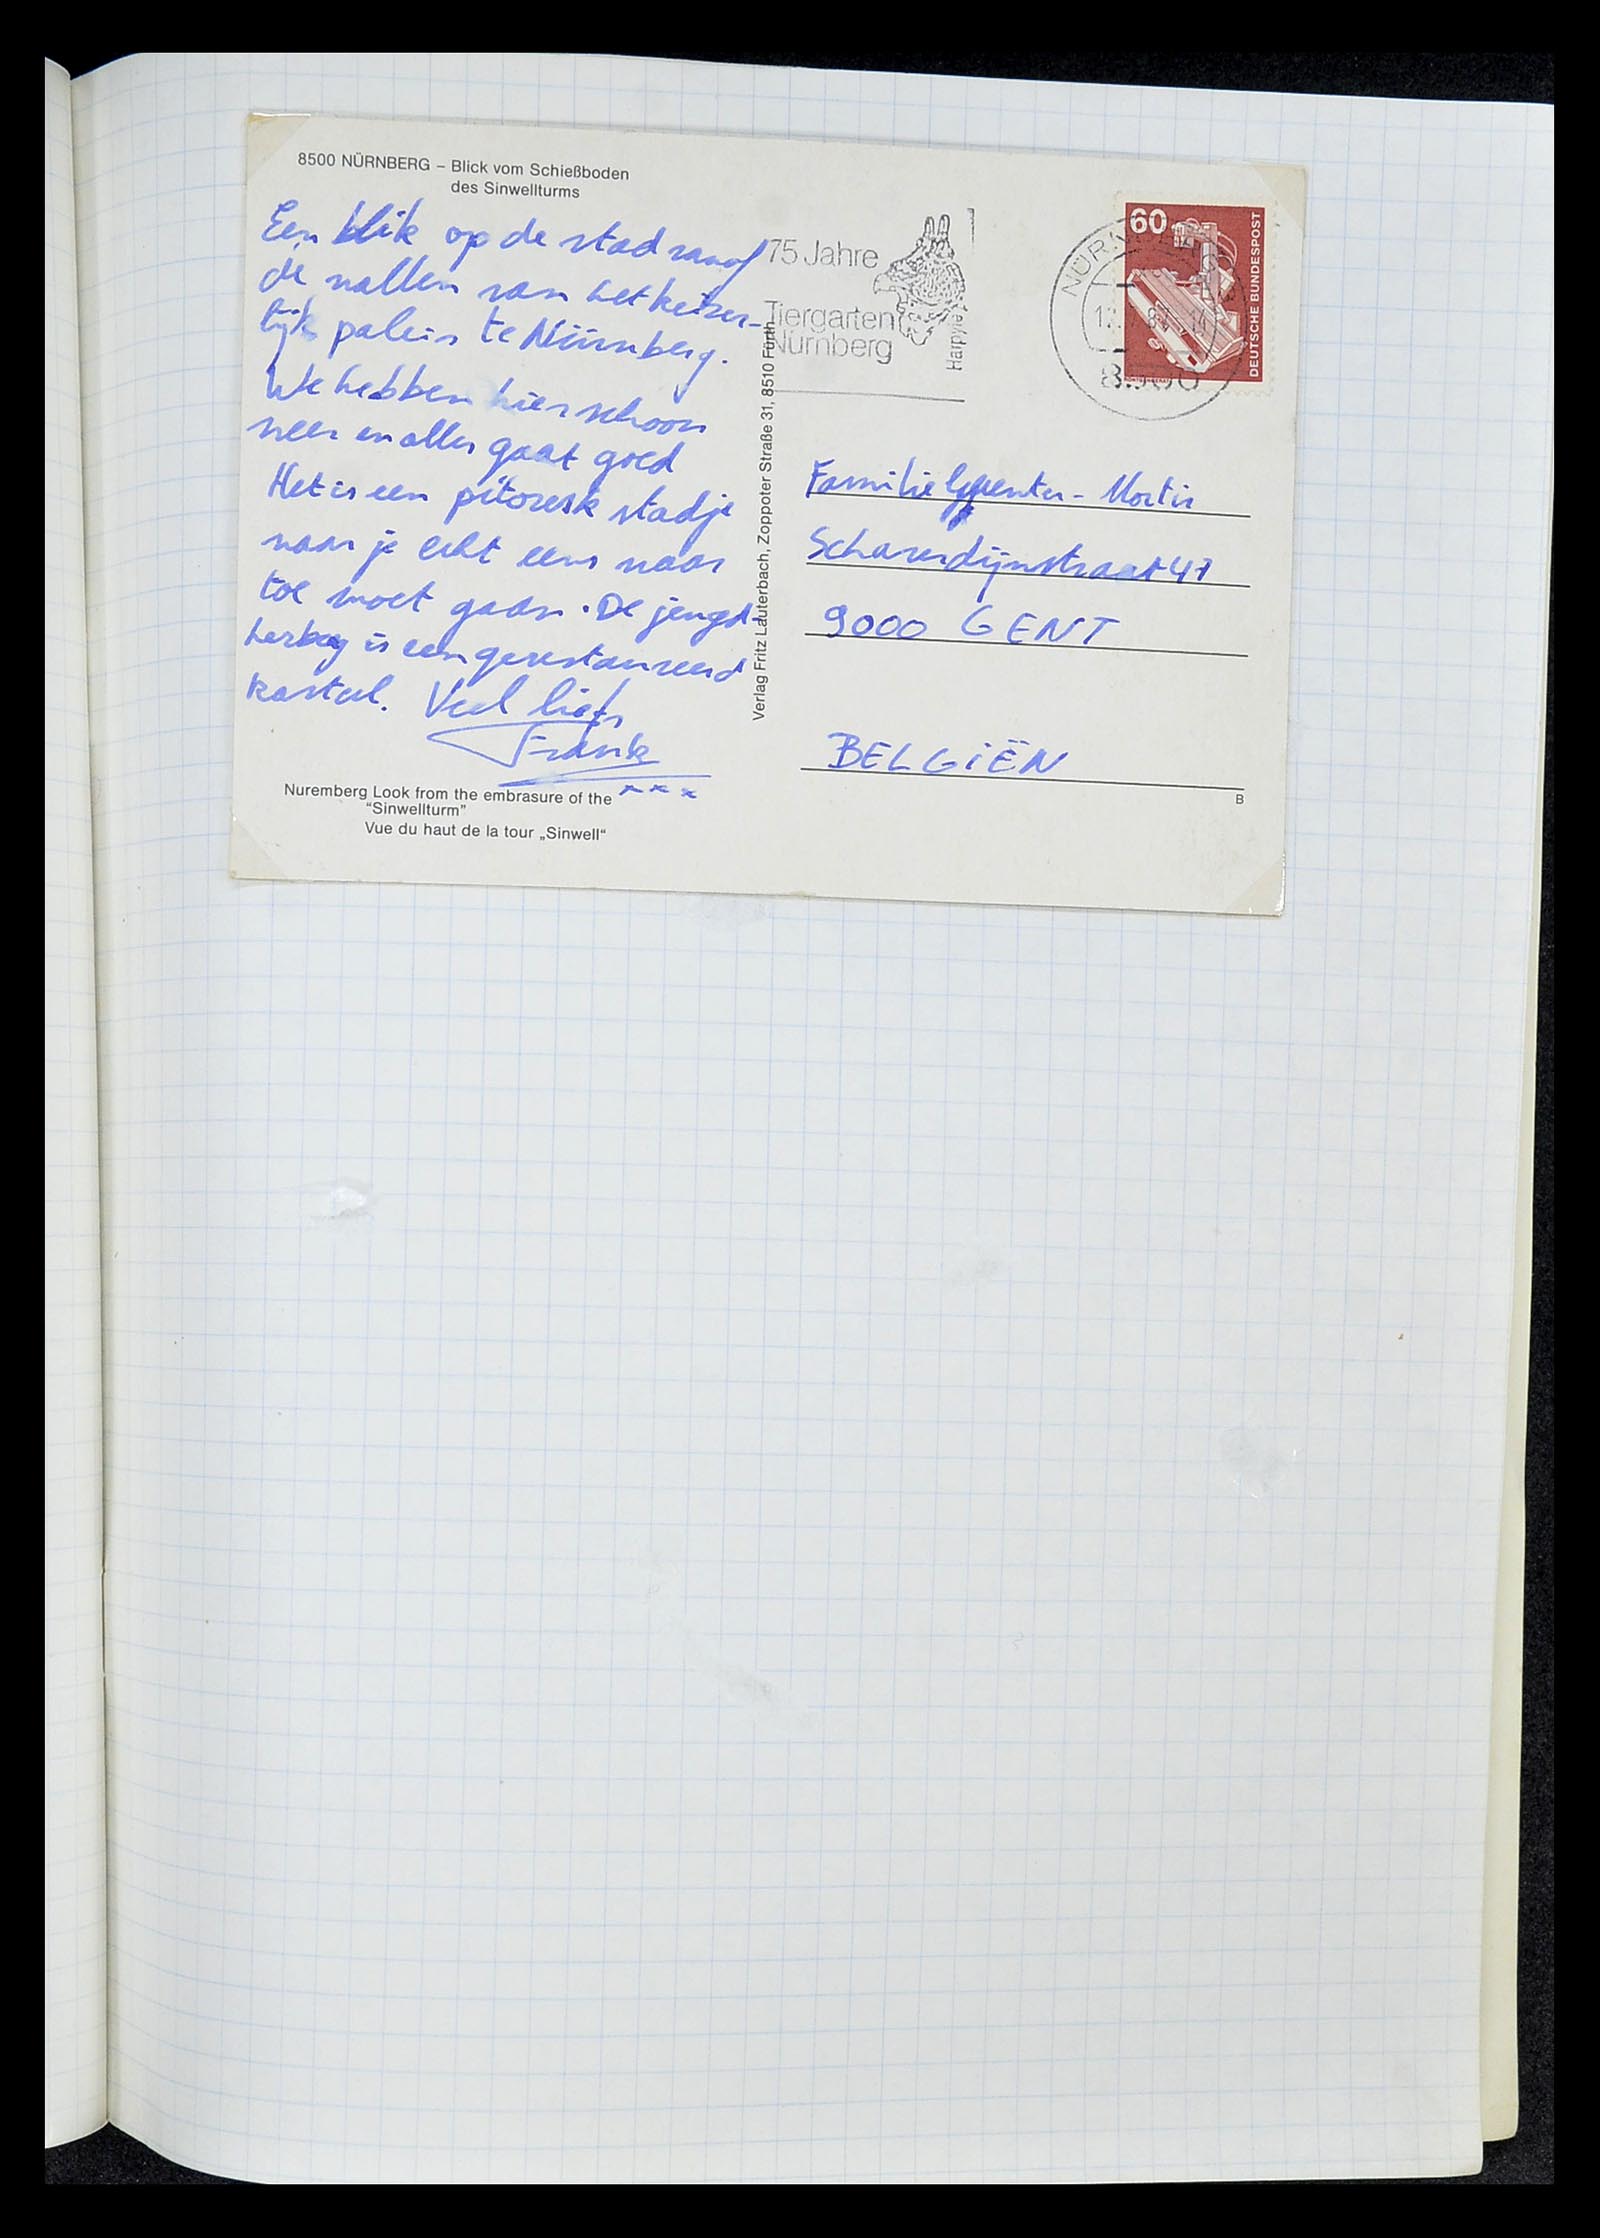 8500 NÜRNBERG – Blick vom Schießboden
des Sinwellturms
Een blik op de stad vanaf
de wallen van het keizer-
lijk paleis te Nürnberg.
We hebben hier schoon
weer en alles gaat goed
Het is een pitoresk stadje
waar je echt eens naar
toe moet gaan. De jeugd-
herberg is een gerestaureerd
kasteel. Veel liefs
Frank
x x x
Nuremberg Look from the embrasure of the
“Sinwellturm”
Vue du haut de la tour „Sinwell“
Verlag Fritz Lauterbach, Zoppoter Straße 31, 8510 Fürth
75 Jahre
Tiergarten
Nürnberg
Harpyie
60
DEUTSCHE BUNDESPOST
8500
Familie
9000 GENT
BELGIËN
B